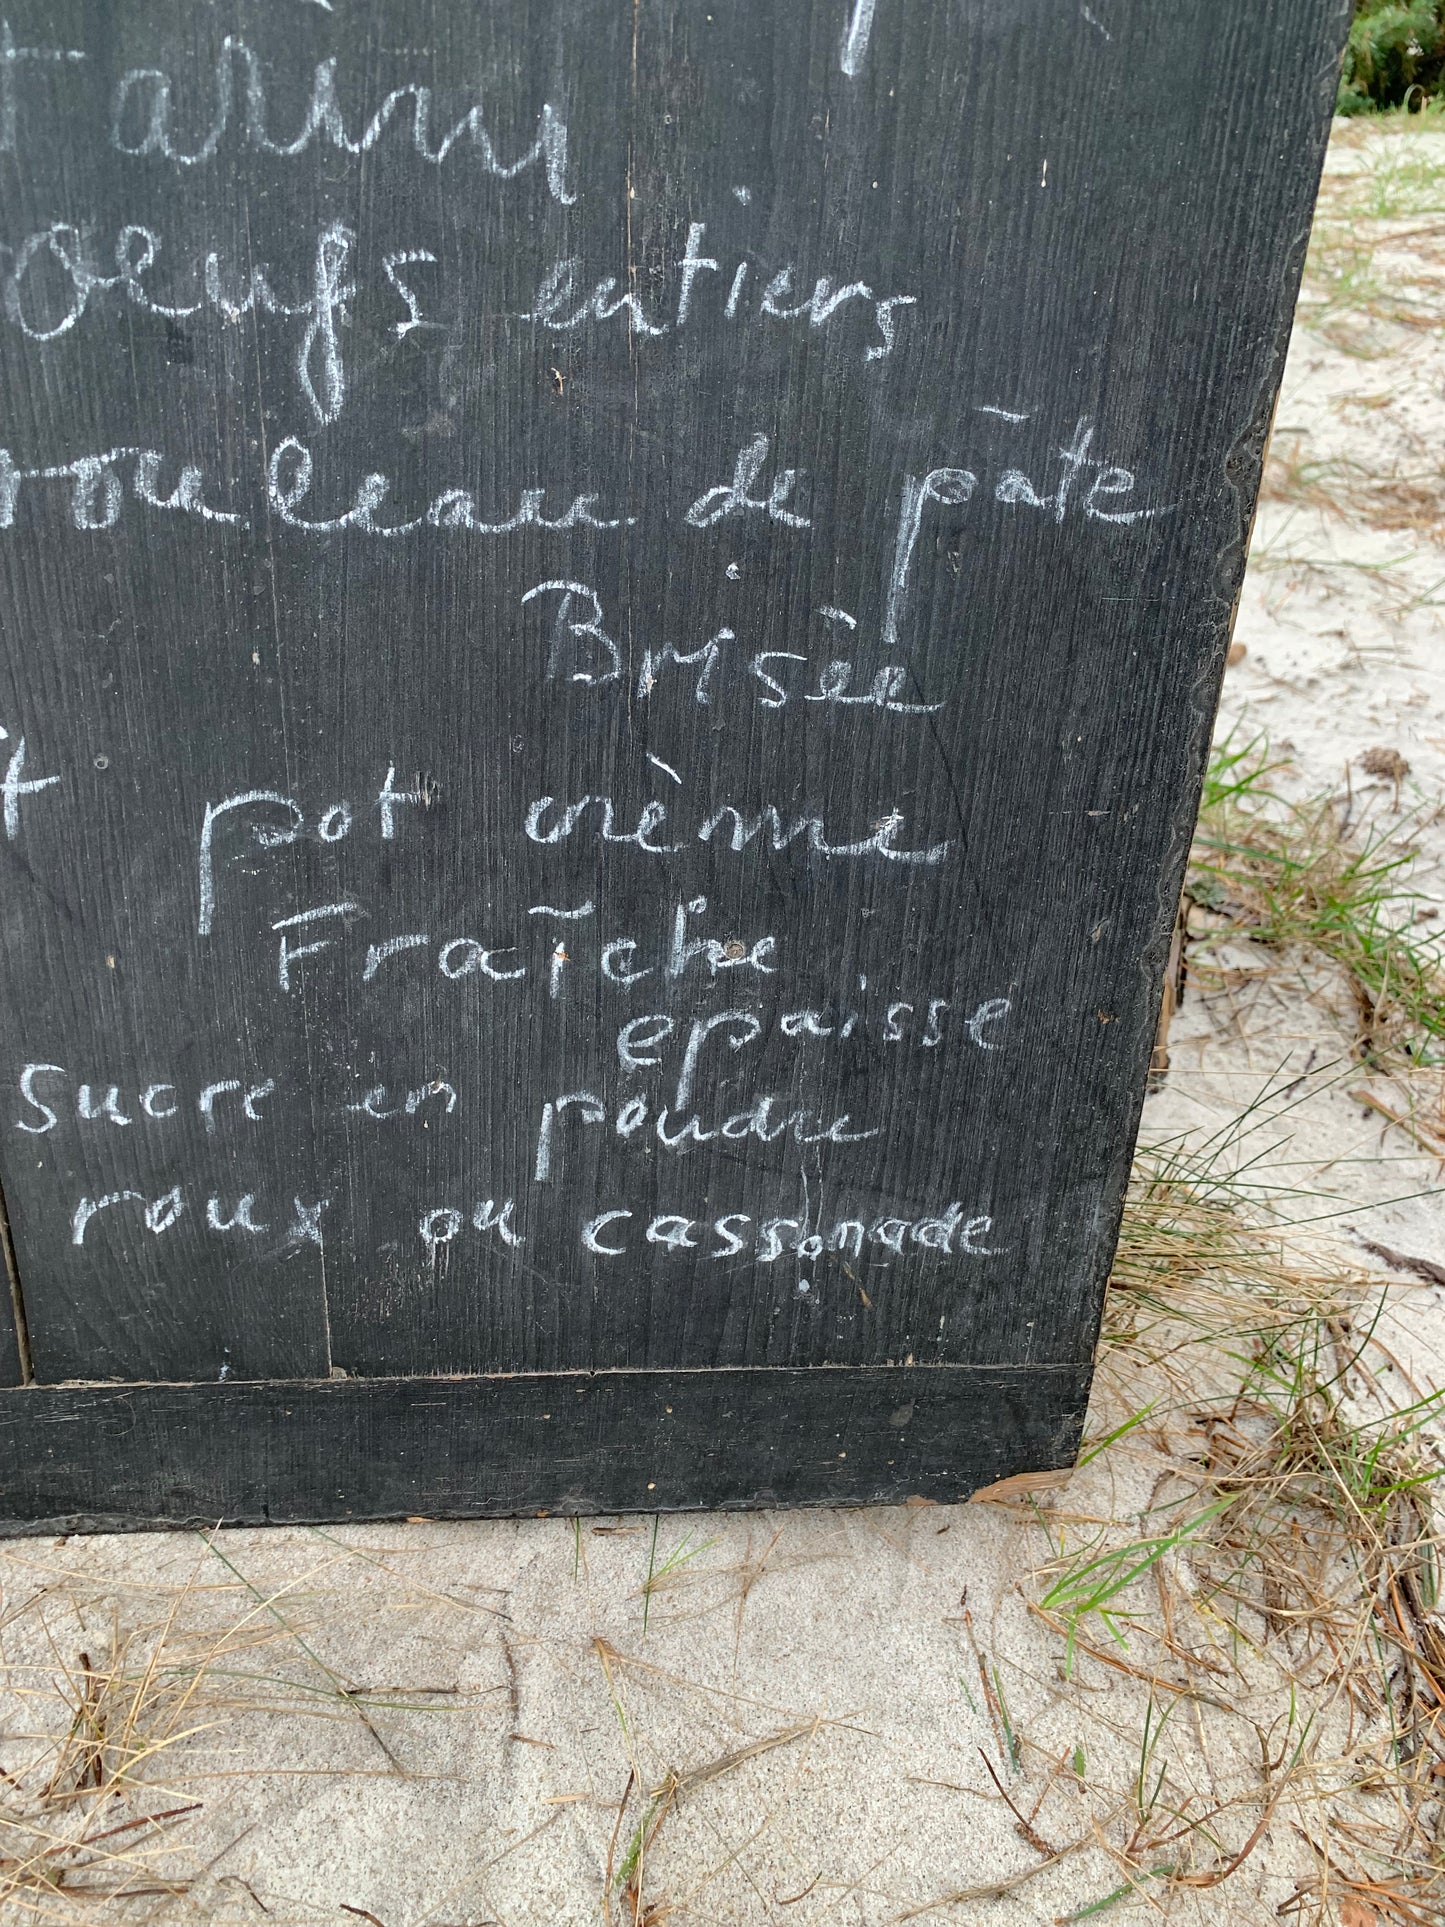 oeufs entiers
rouleau de pâte
Brisée
t pot crème
Fraîche
epaisse
Sucre en poudre
roux ou cassonade